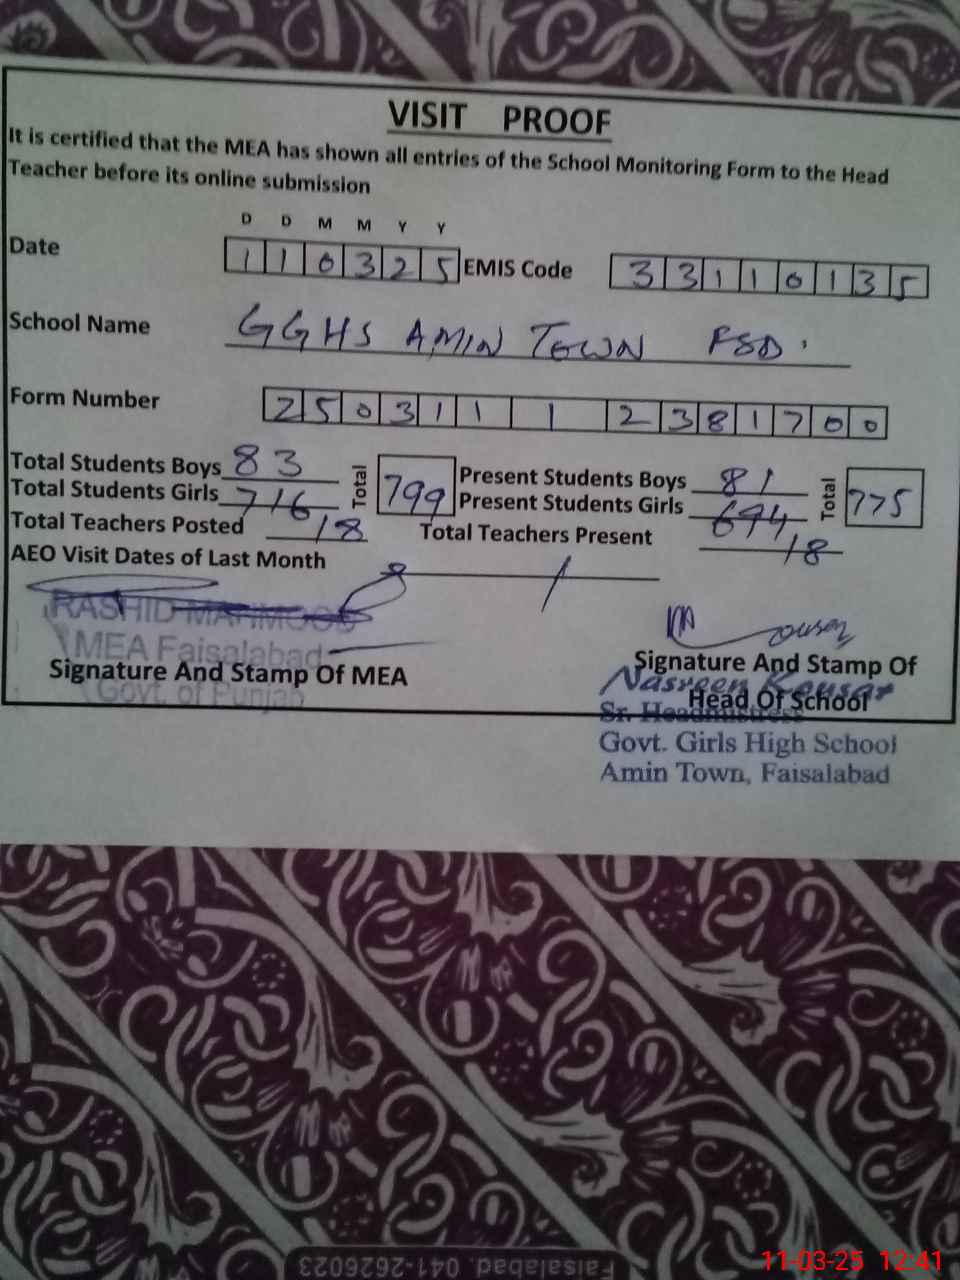 VISIT PROOF
It is certified that the MEA has shown all entries of the School Monitoring Form to the Head
Teacher before its online submission
D D M M Y Y
Date 1 1 0 3 2 5 EMIS Code 3 3 1 1 0 1 3 5
School Name GGHS AMIN TOWN FSD.
Form Number 2 5 0 3 1 1 1 2 3 8 1 7 0 0
Total Students Boys 83 Total 799 Present Students Boys 81 Total 775
Total Students Girls 716 Present Students Girls 694
Total Teachers Posted 18 Total Teachers Present 18
AEO Visit Dates of Last Month
RASHID MAHMOOD
MEA Faisalabad
Signature And Stamp Of MEA
Govt. of Punjab
Kousar
Signature And Stamp Of
Nasreen Kousar
Head Of School
Sr. Headmistress
Govt. Girls High School
Amin Town, Faisalabad
Faisalabad. 041-2626023
11-03-25 12:41